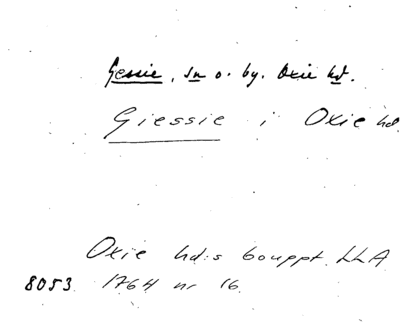 Gessie, sn o. by. Oxie hd.
Giessie i Oxie hd.
Oxie hd:s bouppt. LLA
8053 1764 nr 16.